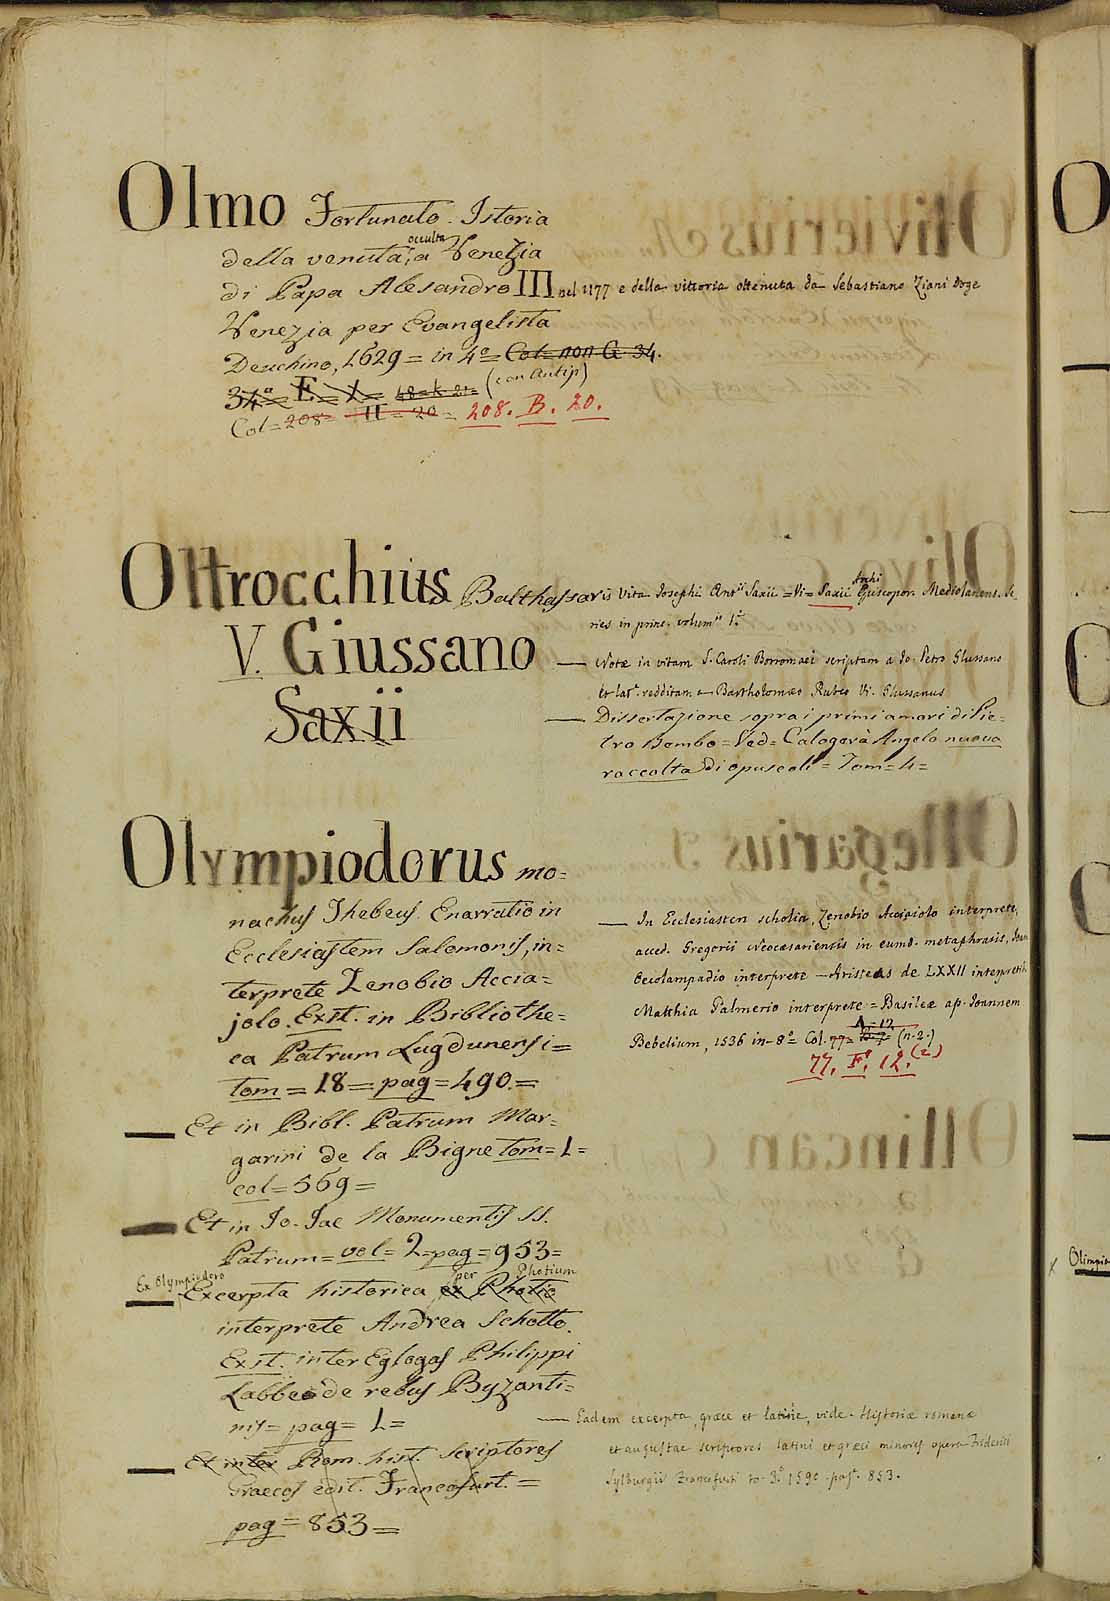 Olmo Fortunato. Istoria
della venuta occulta a Venezia
di Papa Alesandro III nel 1177 e della vittoria ottenuta da Sebastiano Ziani Doge
Venezia per Evangelista
Deuchino, 1629 = in 4º = Col = non G. 34.
34ª = E = X = 48 = k. 21 = (con Antip)
Col = 208 = H = 20 = 208. B. 20.
Oltrocchius Balthassaris Vita Josephi Antii Saxii = Vi = Saxii Archi Episcopor. Mediolanens. Se
ries in princ. volumii 1i
V. Giussano
— Notæ in vitam S. Caroli Borromaei scriptam a Jo. Petro Glussano
et lat. redditam a Bartholomæo Rubeo Vi. Glussanus
Saxii
— Dissertazione sopra i primi amori di Pie=
tro Bembo = Ved = Calogerà Angelo nuova
raccolta di opuscoli = Tom = 4 =
Olympiodorus mo=
nachus Thebeus. Enarratio in
Ecclesiastem Salomonis, in=
terprete Zenobio Accia=
jolo. Exst. in Bibliothe=
ca Patrum Lugdunensi =
tom = 18 = pag = 490. =
— In Ecclesiasten scholia, Zenobio Acciaiolo interprete,
acced. Gregorii Neocæsariensis in eumd. metaphrasis, Joan
Oecolampadio interprete — Aristeas de LXXII interpretib
Matthia Palmerio interprete = Basileæ ap. Joannem
Bebelium, 1536 in-8º = Col. 77 = A = 12 (n. 2.)
77. F. 12. (2)
— Et in Bibl. Patrum Mar=
garini de la Bigne tom = 1 =
col = 569 =
— Et in Jo. Jac Monumentis SS.
Patrum = vol = 2 = pag = 953 =
Ex Olympiodoro
— Excerpta historica ex Photio per Photium
interprete Andrea Schotto.
Exst. inter Eglogas Philippi
Labbeo de rebus Byzanti=
nis = pag = 1 =
— Et inter Rom. hist. Scriptores
Graecos edit. Francofurt. =
pag = 853 =
— Eadem excerpta, græce et latine, vide. Historiæ romanæ
et augustae scriptores latini et græci minores opera Friderici
Sylburgii Francofurti to. 3º 1590 pag. 853.
Olimpio